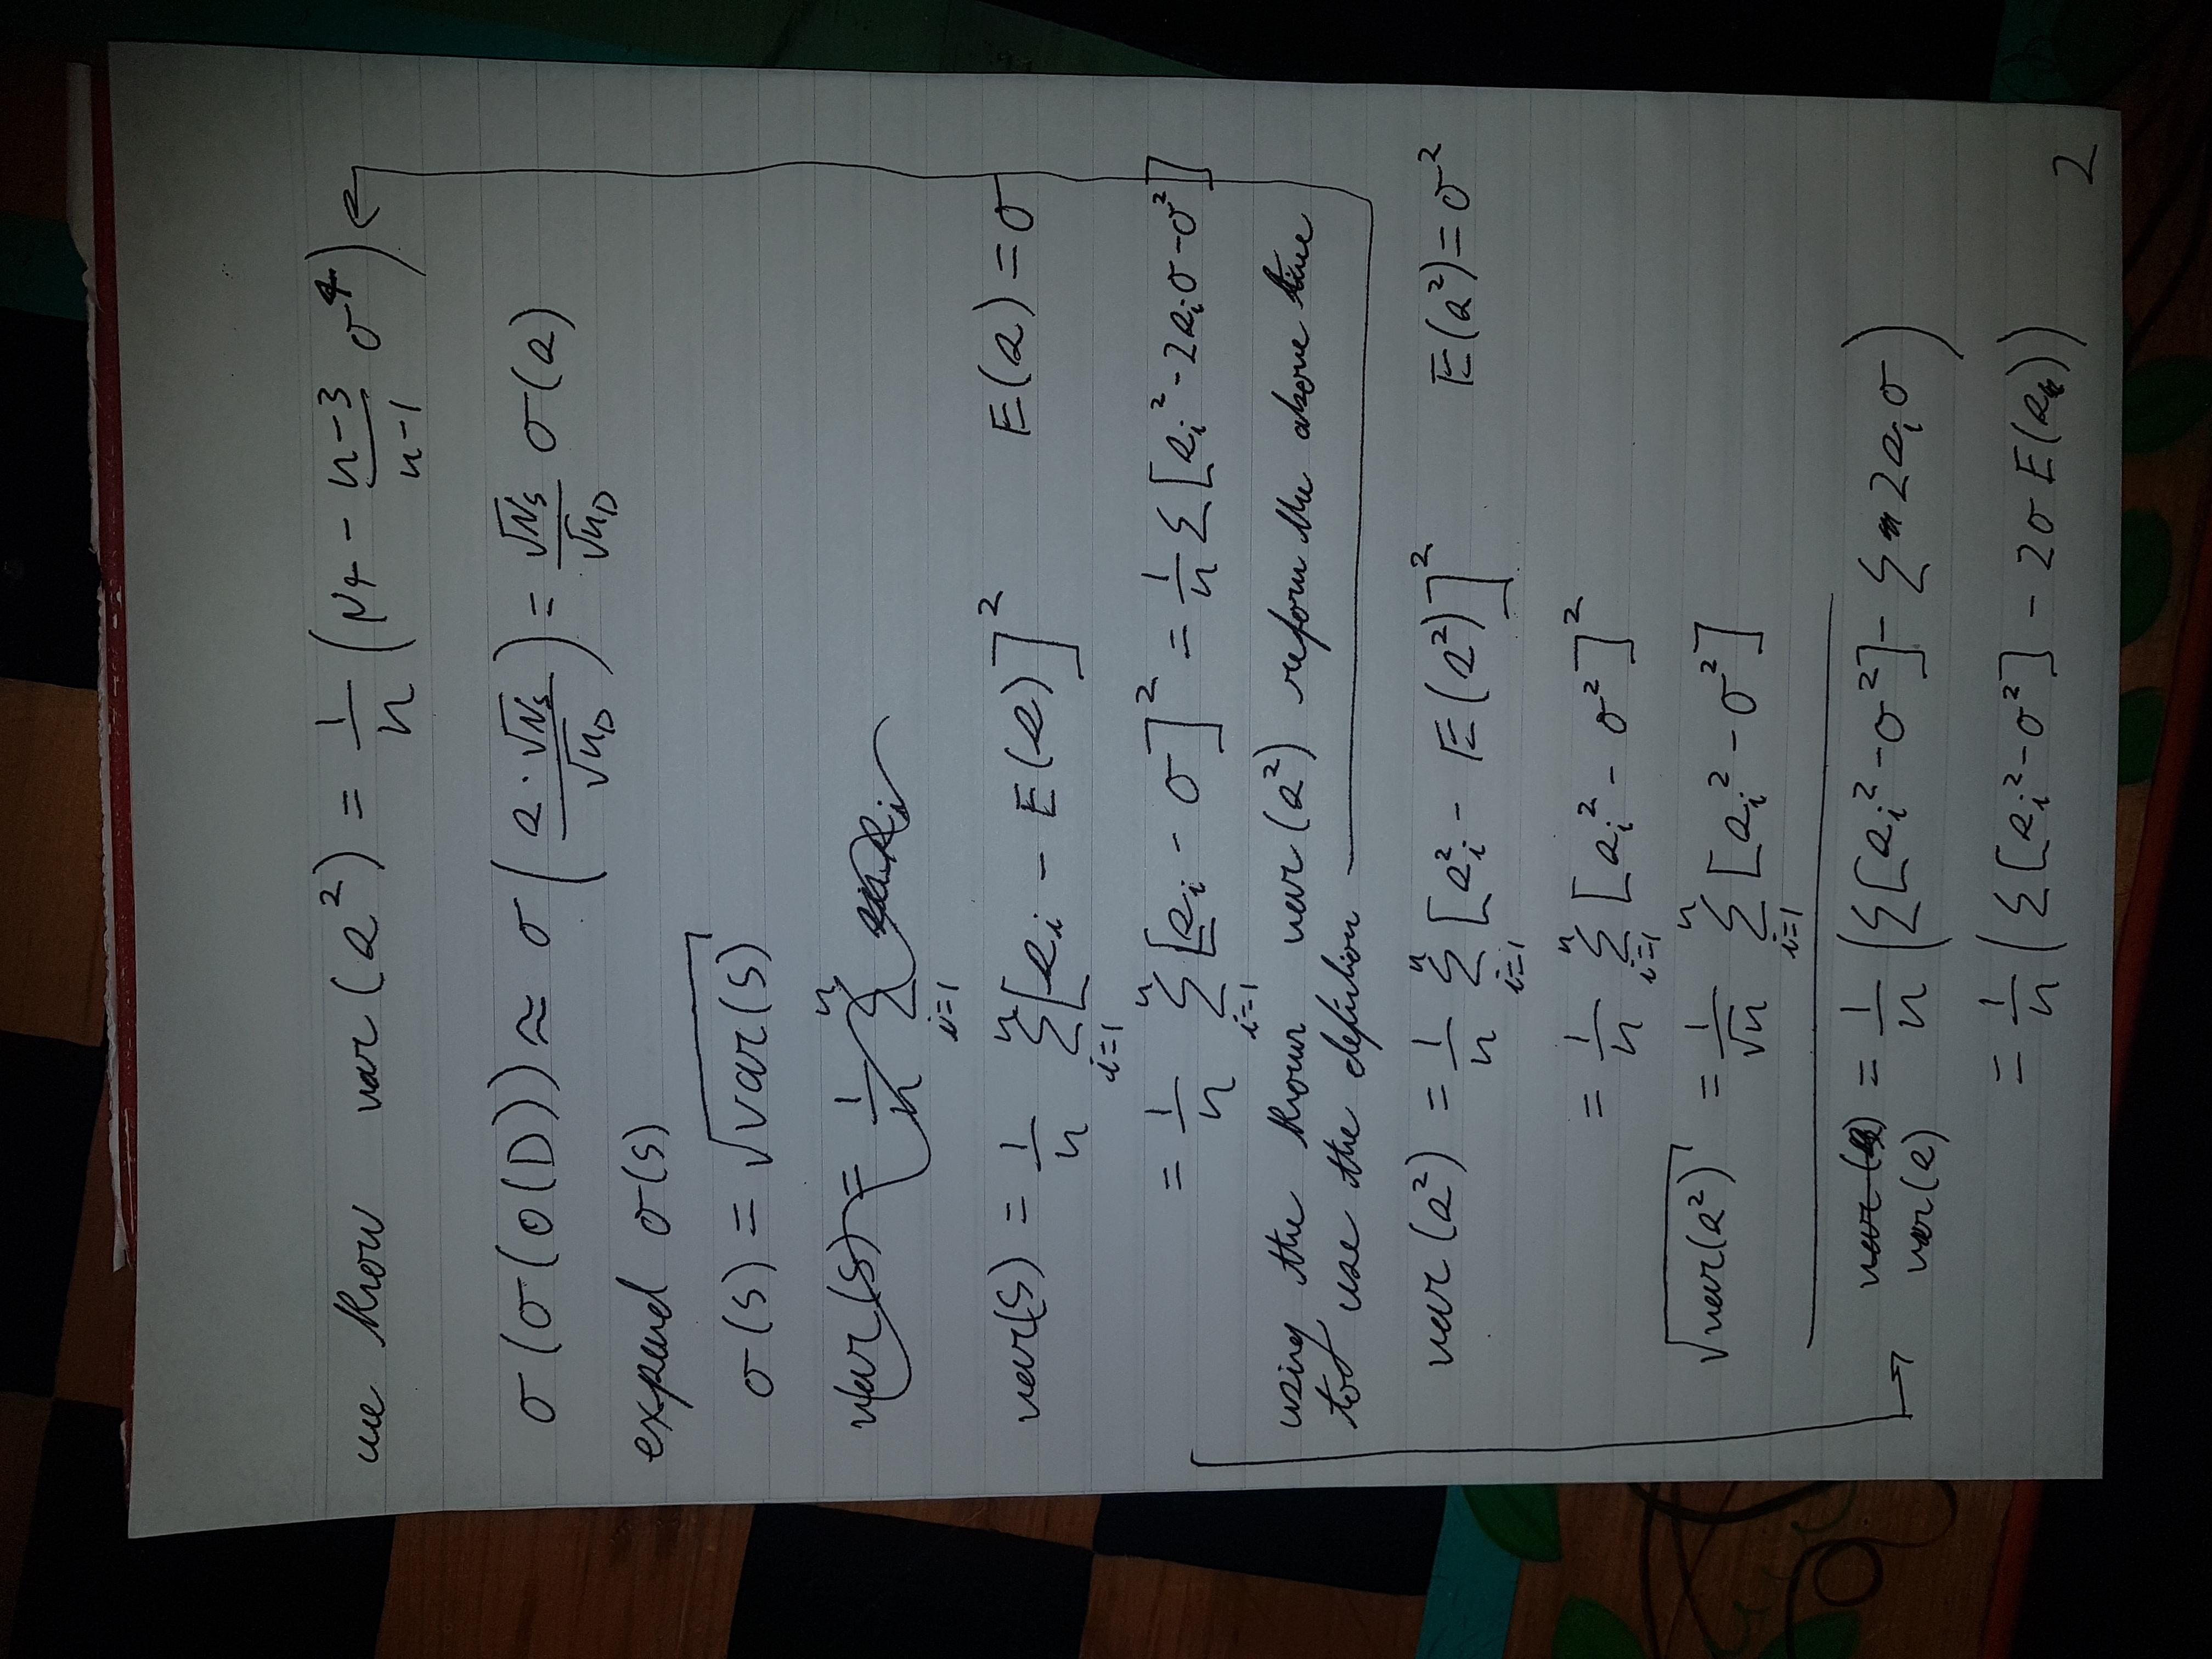 we know var(s²) = 1/n (μ₄ - (n-3)/(n-1) σ⁴)
σ(σ(O(D)) ≈ σ(s·√Nₛ / √n_D) = √Nₛ/√n_D σ(s)
expand σ(s)
σ(s) = √var(s)
var(s) = 1/n Σᵢ₌₁ⁿ
var(s) = 1/n Σᵢ₌₁ⁿ [sᵢ - E(s)]² E(s) = σ
= 1/n Σᵢ₌₁ⁿ [sᵢ - σ]² = 1/n Σ [sᵢ² - 2sᵢσ - σ²]
using the known var(s²) reform the above line
to use the defintion
var(s²) = 1/n Σᵢ₌₁ⁿ [sᵢ² - E(s²)]² E(s²) = σ²
= 1/n Σᵢ₌₁ⁿ [sᵢ² - σ²]²
√var(s²) = 1/√n Σᵢ₌₁ⁿ [sᵢ² - σ²]
var(s) = 1/n (Σ[sᵢ² - σ²] - Σ 2sᵢσ)
= 1/n (Σ[sᵢ² - σ²] - 2σ E(s))
2